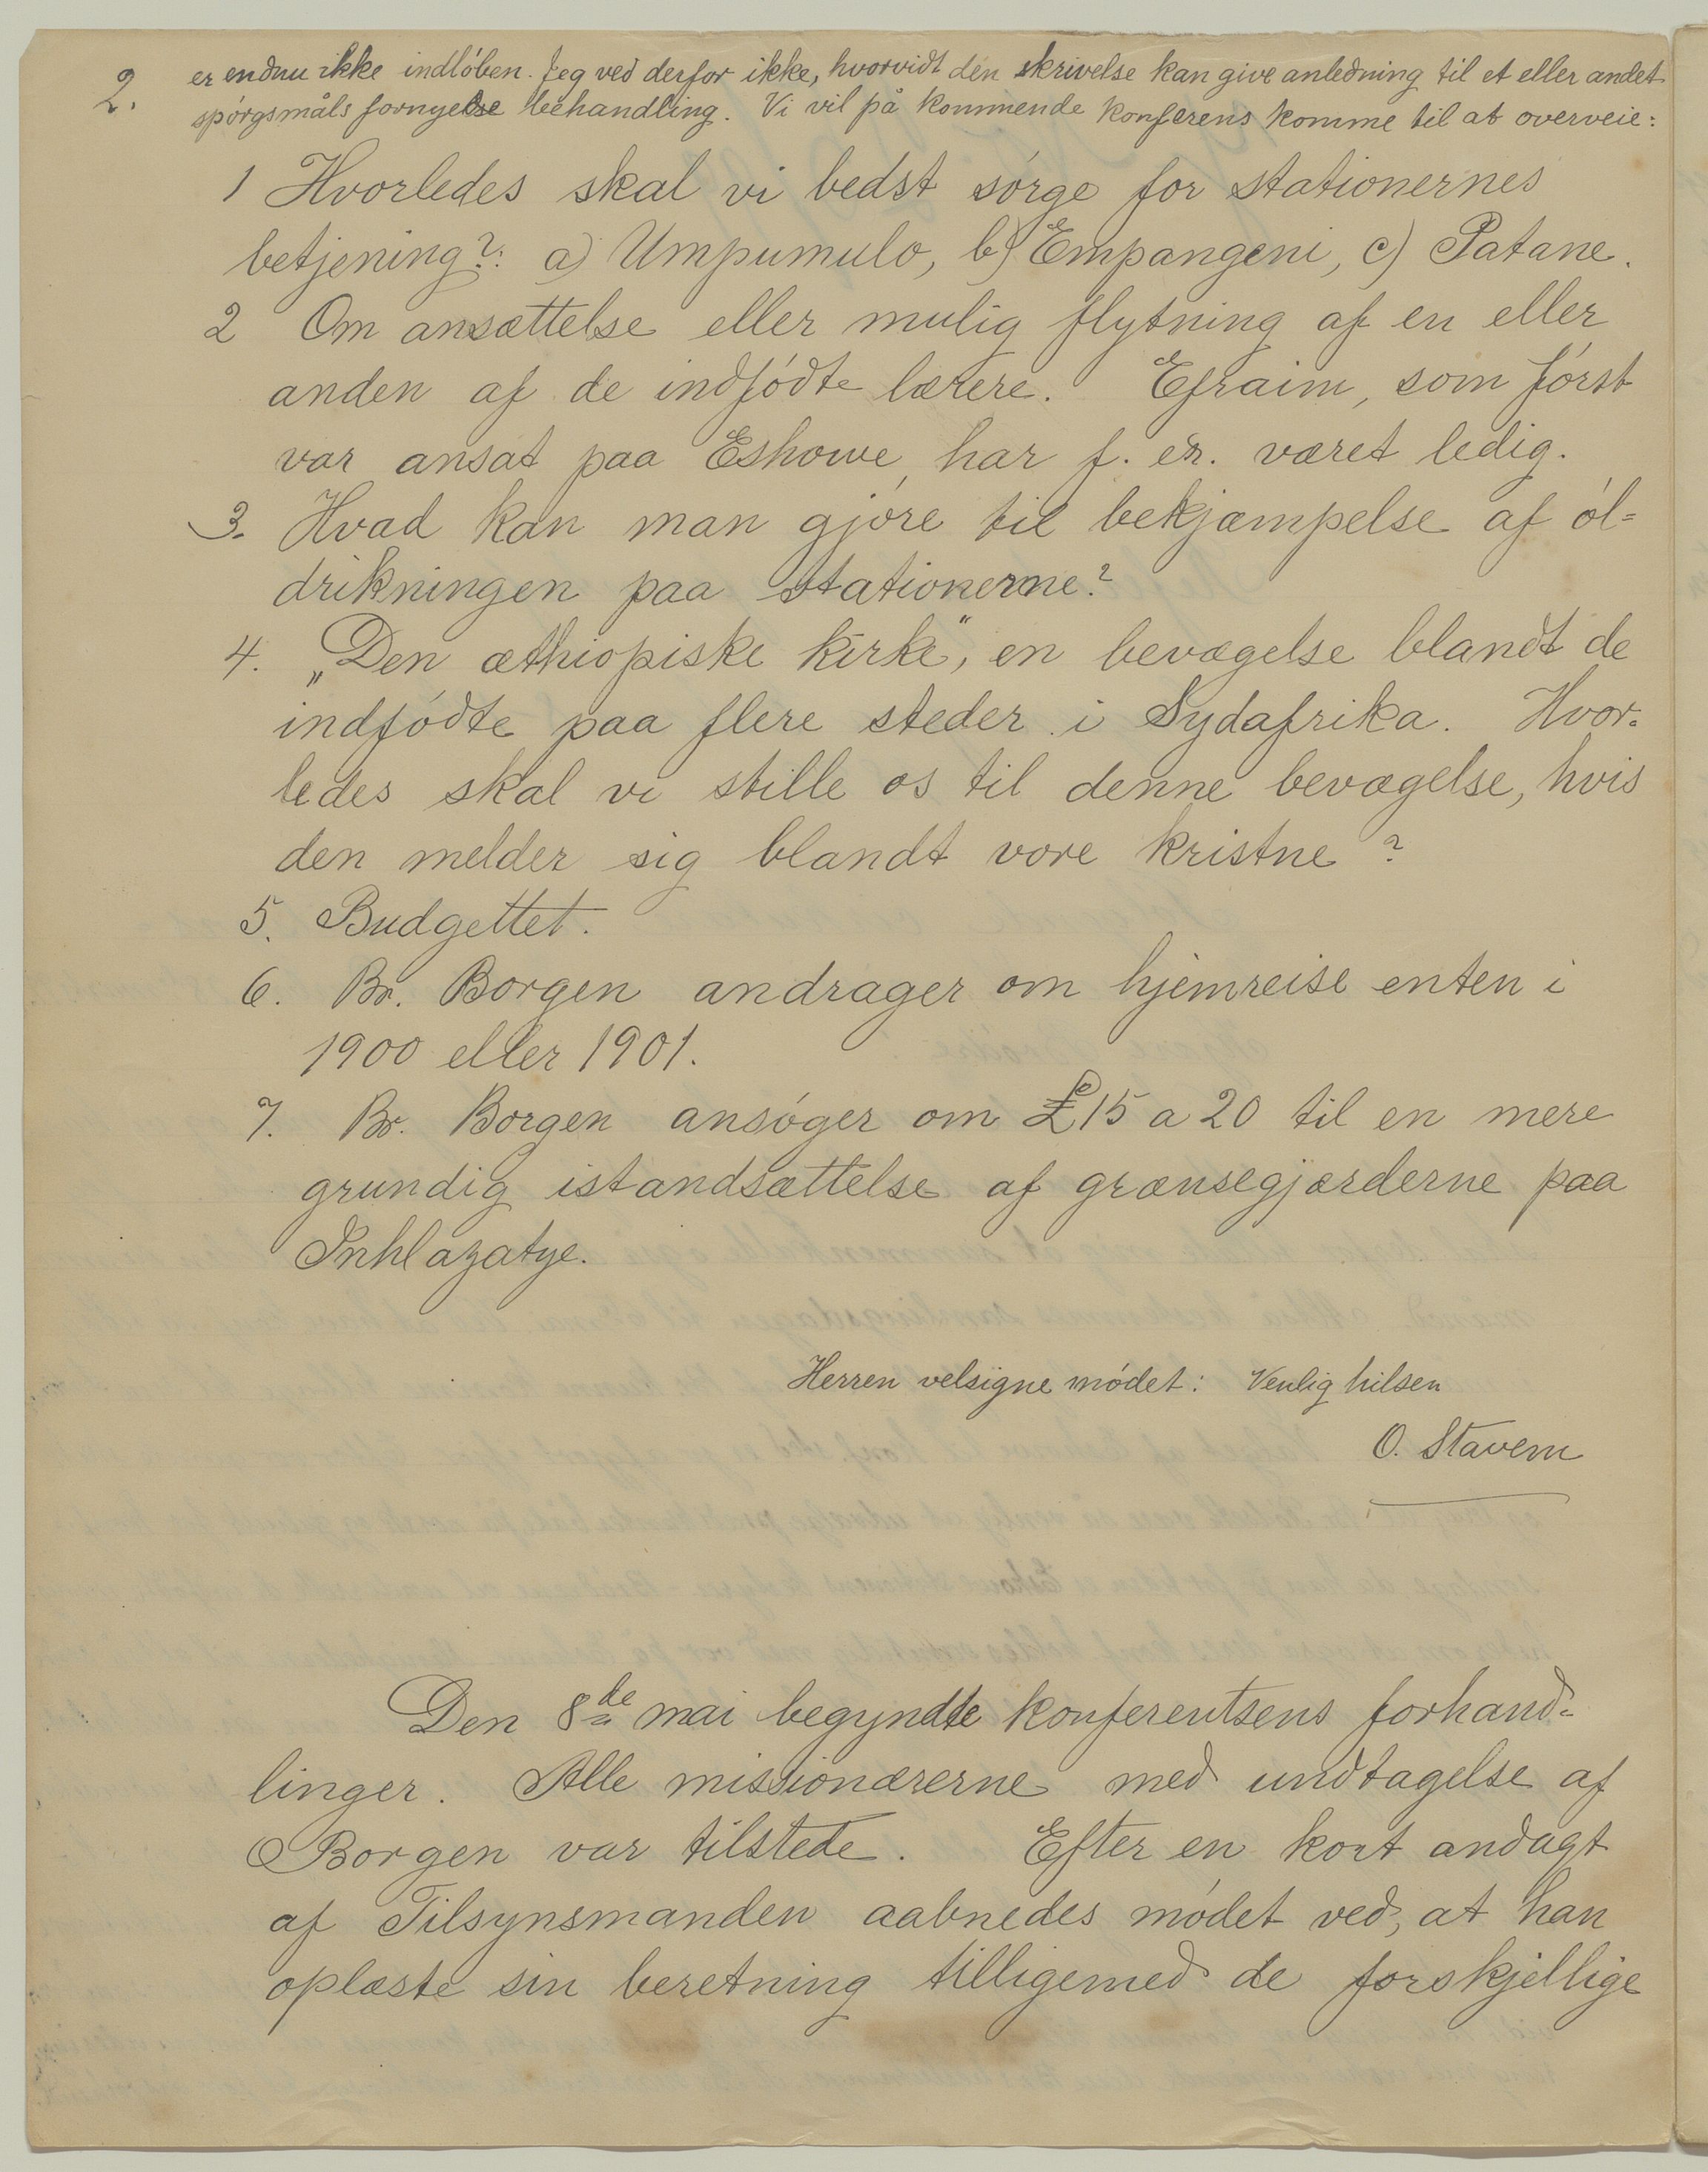 2.
er endnu ikke indløben. Jeg ved derfor ikke, hvorvidt den skrivelse kan give anledning til et eller andet
spørgsmåls fornyelse behandling. Vi vil på kommende konferens komme til at overveie:
1 Hvorledes skal vi bedst sørge for stationernes
betjening?: a) Umpumulo, b) Empangeni, c) Patane.
2 Om ansættelse eller mulig flytning af en eller
anden af de indfødte lærere. Efraim, som først
var ansat paa Eshowe, har f. ex. været ledig.
3. Hvad kan man gjøre til bekjæmpelse af øl=
drikningen paa stationerne?
4. „Den æthiopiske kirke", en bevægelse blandt de
indfødte paa flere steder i Sydafrika. Hvor=
ledes skal vi stille os til denne bevægelse, hvis
den melder sig blandt vore kristne?
5. Budgettet.
6. Br. Borgen andrager om hjemreise enten i
1900 eller 1901.
7. Br. Borgen ansøger om £15 a 20 til en mere
grundig istandsættelse af grænsegjærderne paa
Inhlazatye.
Herren velsigne mødet: Venlig hilsen
O. Stavem
Den 8de mai begyndte konferentsens forhand=
linger. Alle missionærerne med undtagelse af
Borgen var tilstede. Efter en kort andagt
af Tilsynsmanden aabnedes mødet ved, at han
oplæste sin beretning tilligemed de forskjellige